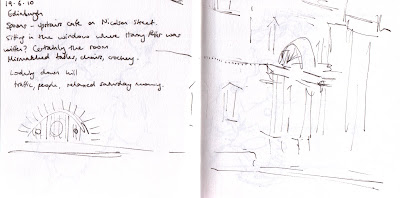 19.6.10
Edinburgh
Spoons - upstairs cafe on Nicolson Street.
Sitting in the windows where Harry Potter was
written? Certainly the room
Mismatched tables, chairs, crockery.
Looking down hill
traffic, people, relaxed saturday morning.